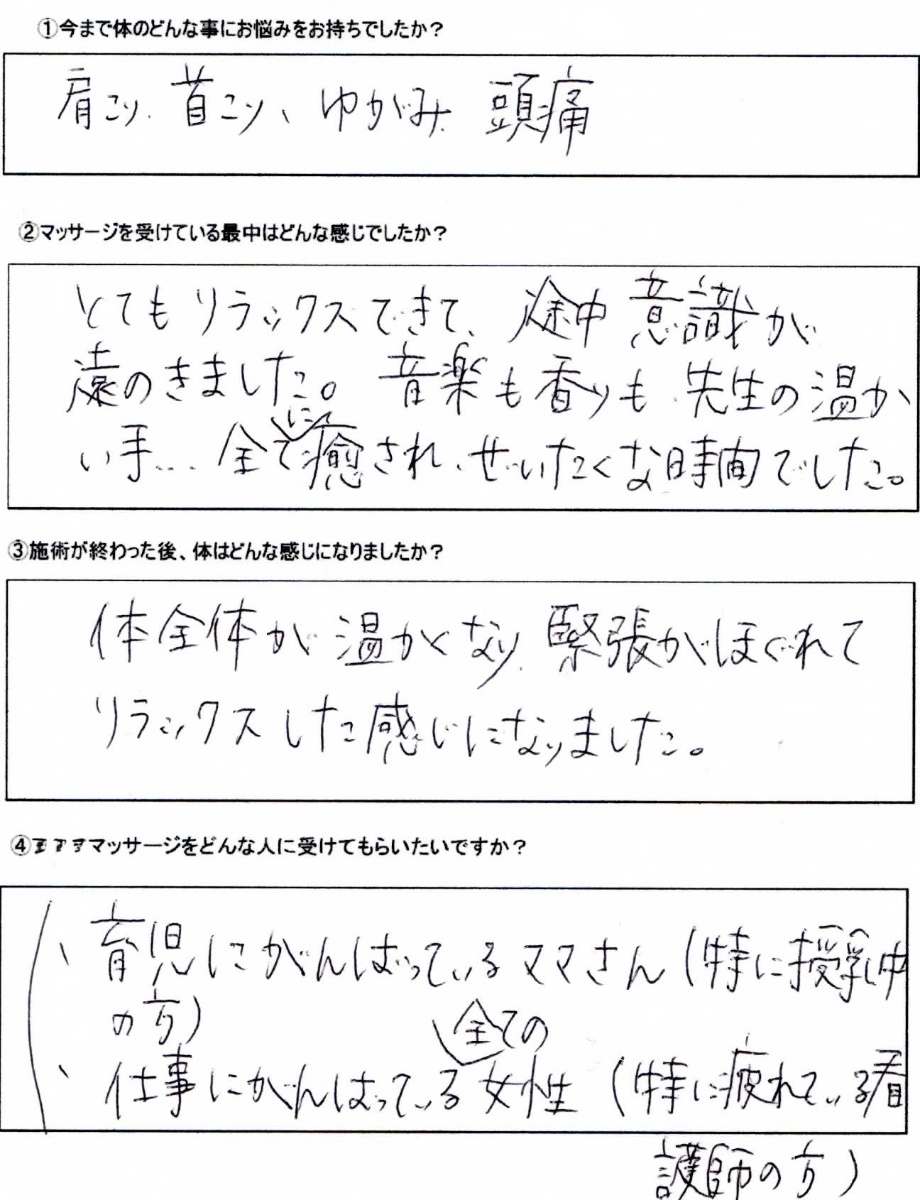 ①今まで体のどんな事にお悩みをお持ちでしたか?
肩こり、首こり、ゆがみ、頭痛
②マッサージを受けている最中はどんな感じでしたか?
とてもリラックスできて、途中意識が
遠のきました。音楽も香りも、先生の温か
い手… 全てに癒され、ぜいたくな時間でした。
③施術が終わった後、体はどんな感じになりましたか?
体全体が温かくなり、緊張がほぐれて
リラックスした感じになりました。
④マッサージをどんな人に受けてもらいたいですか?
、育児にがんばっているママさん(特に授乳中
の方)
、仕事にがんばっている全ての女性(特に疲れている看
護師の方)